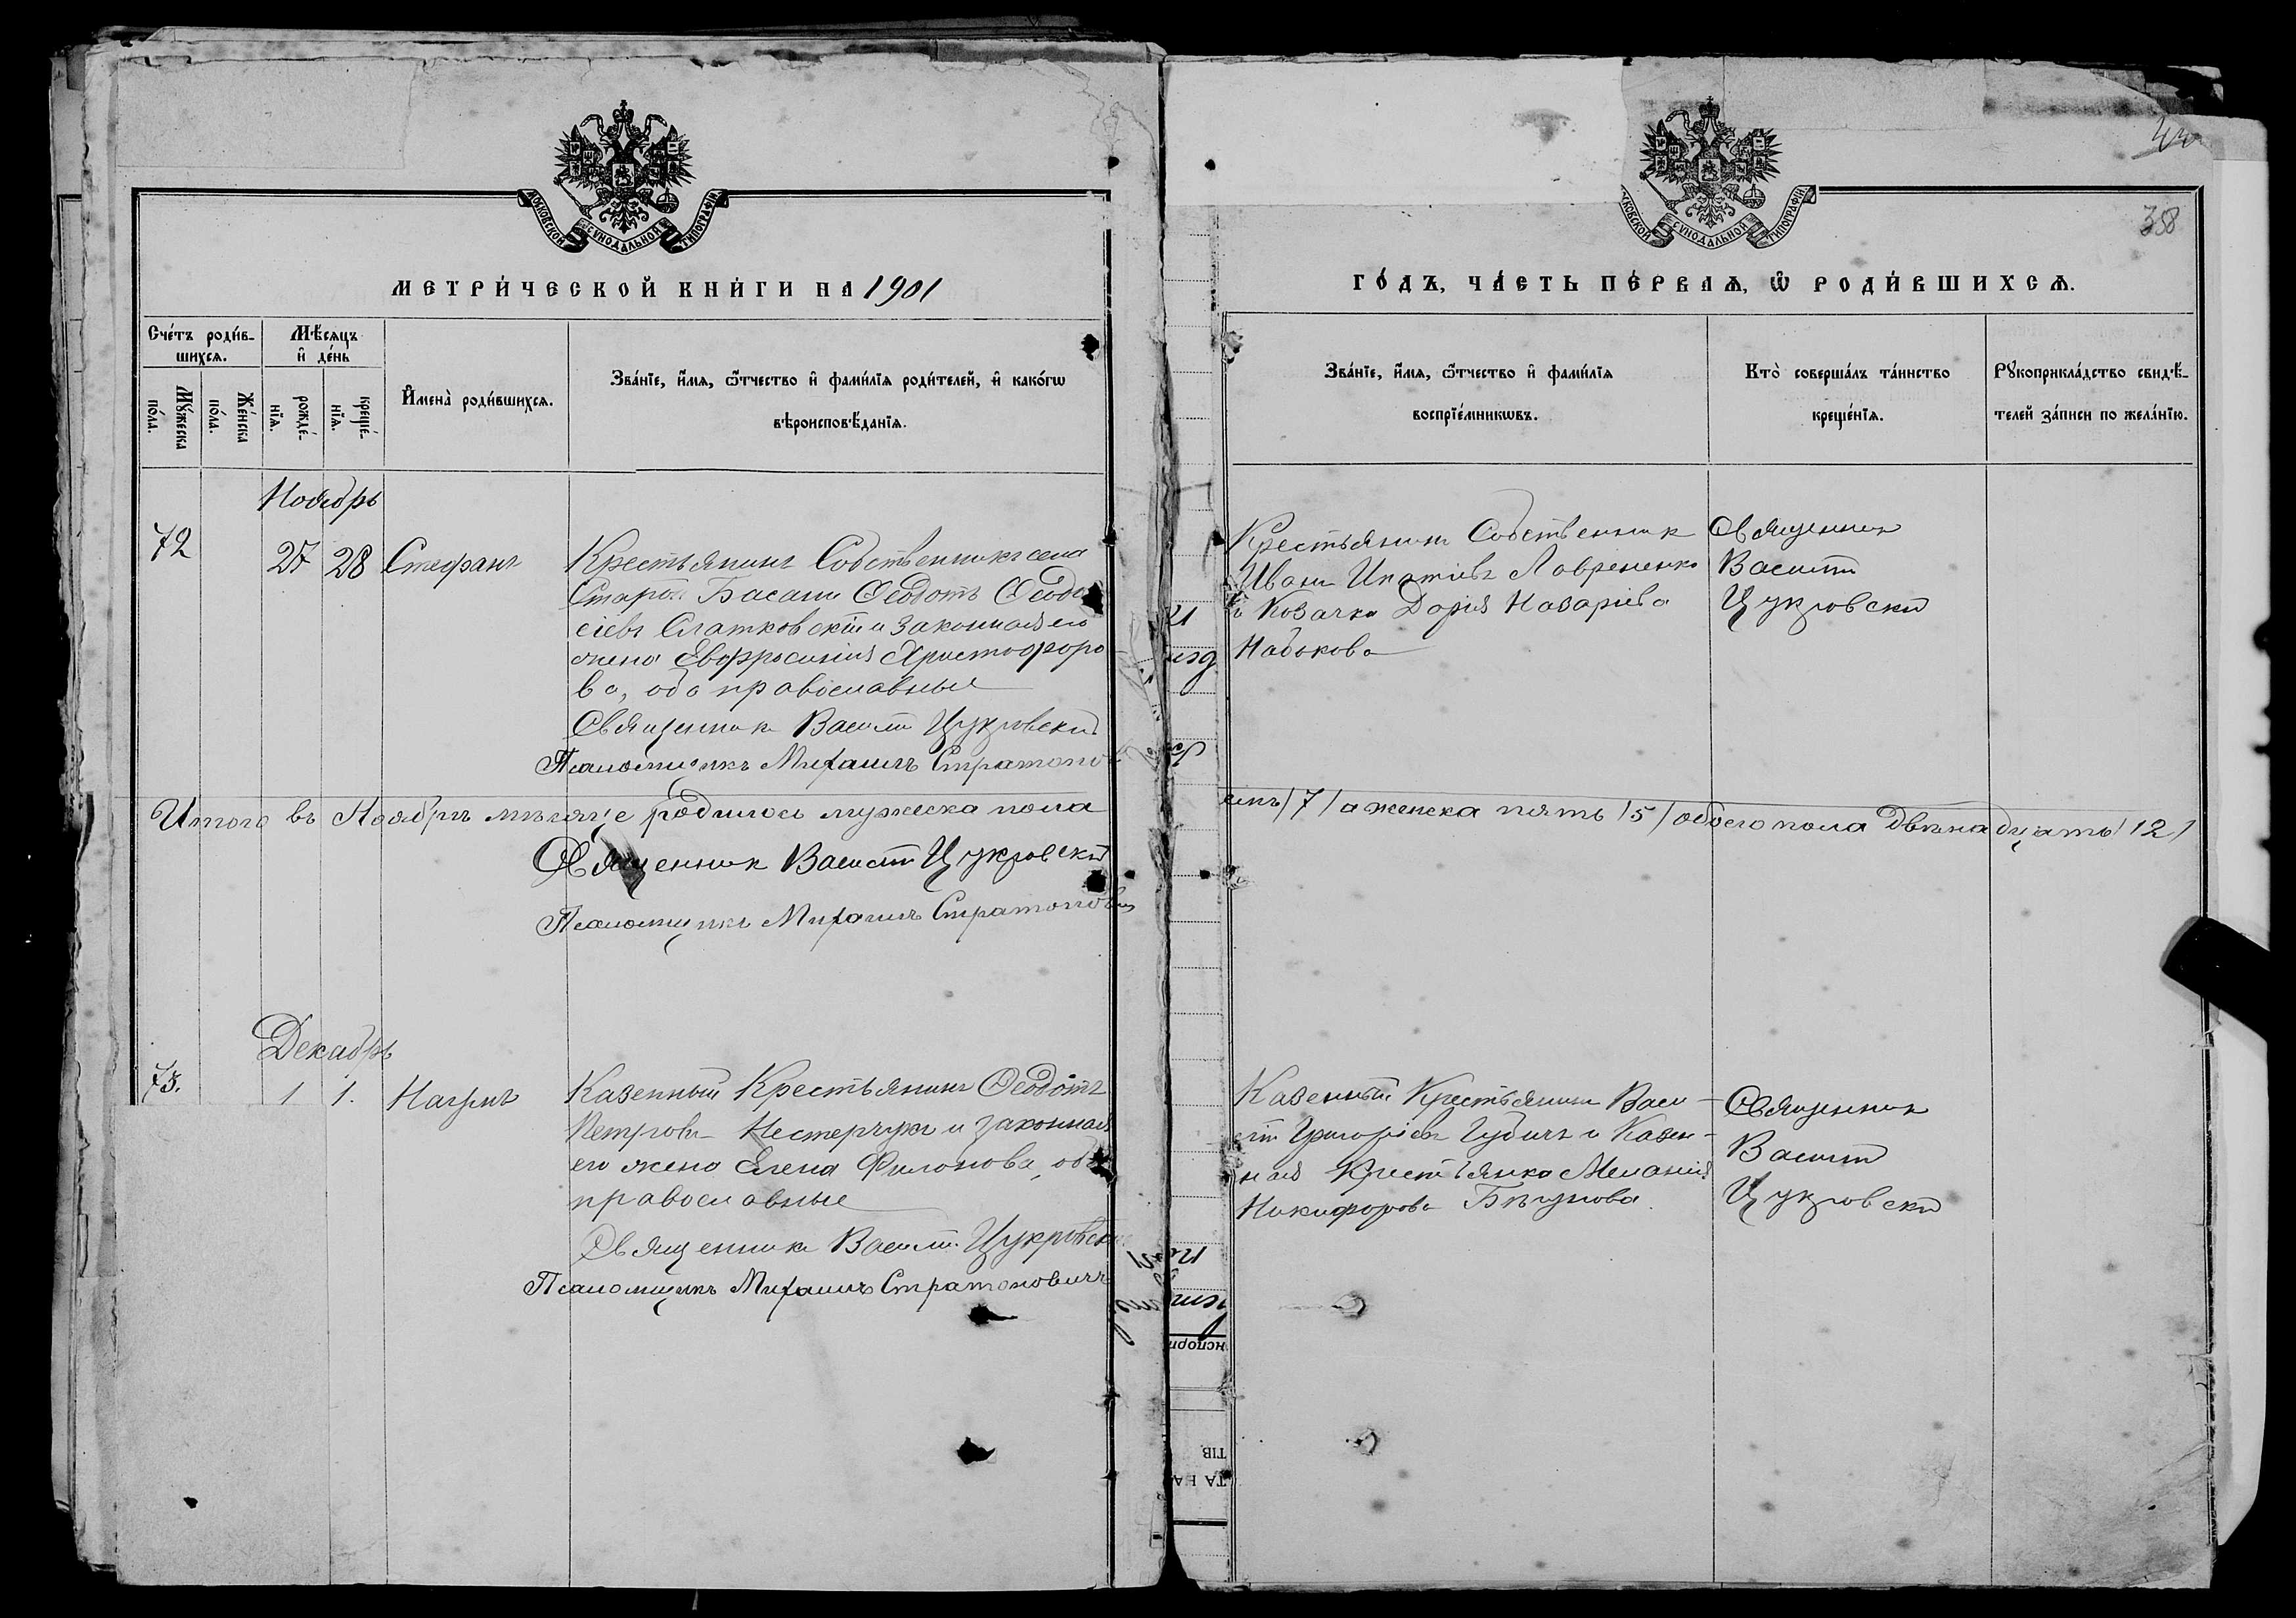 МОСКОВСКОЙ СѴНОДАЛЬНОЙ ТИПОГРАФІИ
МЕТРИ́ЧЕСКОЙ КНИ́ГИ НА 1901
Сче́тъ роди́в-
шихсѧ.
Мѣ́сѧцъ
и҆ де́нь
И҆мена̀ роди́вшихсѧ.
Зва́нїе, и҆́мѧ, ѻ҆́тчество и҆ фами́лїѧ роди́телей, и҆ како́гѡ
вѣроисповѣ́данїѧ.
Мꙋ́жеска
по́ла.
Же́нска
по́ла.
рожде́-
нїѧ.
креще́-
нїѧ.
Ноябрь
72
27 28 Стефанъ
Крестьянинъ Собственникъ села
Старой Басани Ѳеодотъ Ѳеодо
сіевъ Слатковскій и законная его
жена Евфросинія Христофоро
ва, оба православные
Священникъ Василій Цукровскій
Псаломщикъ Михаилъ Стратоно
Итого въ Ноябрѣ мѣсяце родилось мужеска пола
Священникъ Василій Цукровскій
Псаломщикъ Михаилъ Стратонович
Декабрь
73.
1 1. Наумъ
Казенный Крестьянинъ Ѳеодотъ
Петровъ Нестерчукъ и законная
его жена Елена Филонова, оба
православные
Священникъ Василій Цукровскі
Псаломщикъ Михаилъ Стратоновичъ
358
МОСКОВСКОЙ СѴНОДАЛЬНОЙ ТИПОГРАФІИ
ГО́ДЪ, ЧА́СТЬ ПЕ́РВАѦ, Ѡ҆ РОДИ́ВШИХСѦ.
Зва́нїе, и҆́мѧ, ѻ҆́тчество и҆ фами́лїѧ
воспрїе́мникѡвъ.
Кто̀ соверша́лъ та́инство
креще́нїѧ.
Рꙋкоприкла́дство свидѣ́-
телей за́писи по жела́нїю.
Крестьянинъ Собственникъ
Иванъ Игнатіевъ Лавриненко
и Козачка Дарія Назаріева
Набокова
Священникъ
Василій
Цукровскій
семь /7/ а женска пять /5/ обоего пола двѣнадцать /12/
Казенный Крестьянинъ Васи-
лій Григоріевъ Губичъ и Казен-
ная Крестьянка Меланія
Никифорова Бѣгунова
Священникъ
Василій
Цукровскій